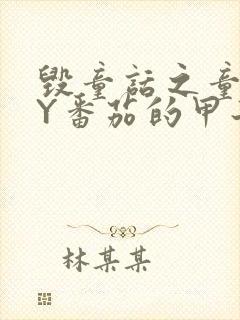 毁童话之童
Y番茄的甲
林某某